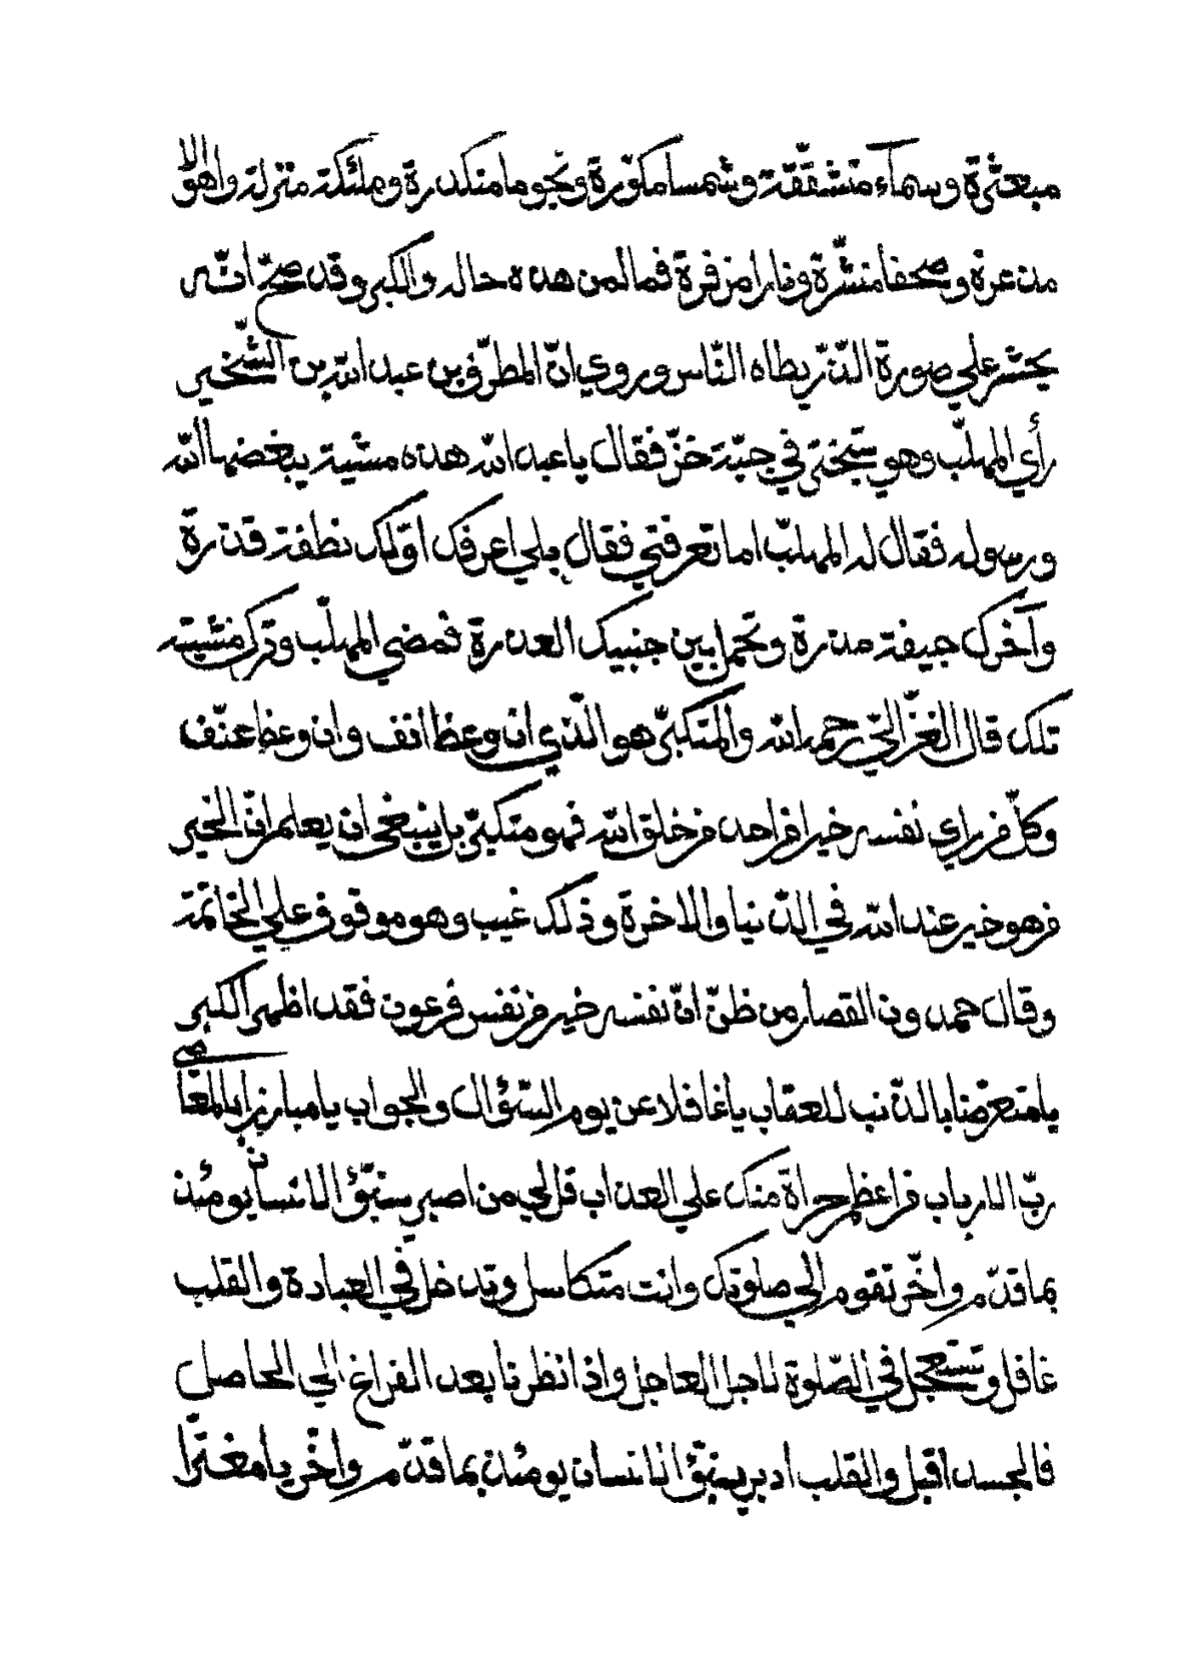 مبعثرة وسماء متشقّقة وشمسا مكوّرة ونجوما منكدرة وملئكة منزلة واهوالا
مذعرة وصحفا منشّرة ونارا مزفرة فما لمن هذه حاله والكبر وقد صحّ انّه
يحشر على صورة الذّرّ يطاه النّاس وروي انّ المطرّف بن عبد الله بن الشّخير
رأي المهلّب وهو يتبختر في جبّة خزّ فقال يا عبد الله هذه مشية يبغضها الله
ورسوله فقال له المهلّب اما تعرفني فقال بلي اعرفك اوّلك نطفة قذرة
وآخرك جيفة مذرة وتحمل بين جنبيك العذرة فمضي المهلّب وترك مشيته
تلك قال الغزّالي رحمه الله والمتكبّر هو الّذي ان وعظ انف وان وعظ عنّف
وكلّ من راي نفسه خيرا من احد من خلق الله فهو متكبّر بل ينبغي ان يعلم انّ الخير
من هو خير عند الله في الدّنيا والاخرة وذلك غيب وهو موقوف علي الخاتمة
وقال حمدون القصار من ظنّ انّ نفسه خير من نفس فرعون فقد اظهر الكبر
يا متعرّضا بالذّنب للعقاب يا غافلا عن يوم السّؤال والجواب يا مبارزا بالمعاصي
ربّ الارباب من اعظم جراة منك علي العذاب قل لي من اصبر ينبّؤ الانسان يومئذ
بما قدّم واخّر تقوم الي صلوتك وانت متكاسل وتدخل في العبادة والقلب
غافل وتستعجل في الصّلوة لاجل العاجل واذا نظرنا بعد الفراغ الي الحاصل
فالجسد اقبل والقلب ادبر ينبّؤ الانسان يومئذ بما قدّم واخّر يا مغترّا